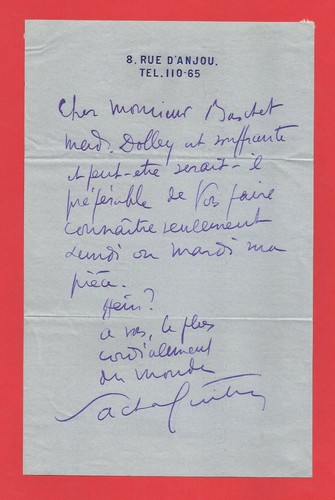 8, RUE D'ANJOU.
TEL. 110-65
Cher Monsieur Baschet
Mad. Dolley est souffrante
et peut-être serait-il
préférable de vous faire
connaître seulement
Lundi ou Mardi ma
pièce.
Hein?
à vous, le plus
cordialement
du monde
Sacha Guitry